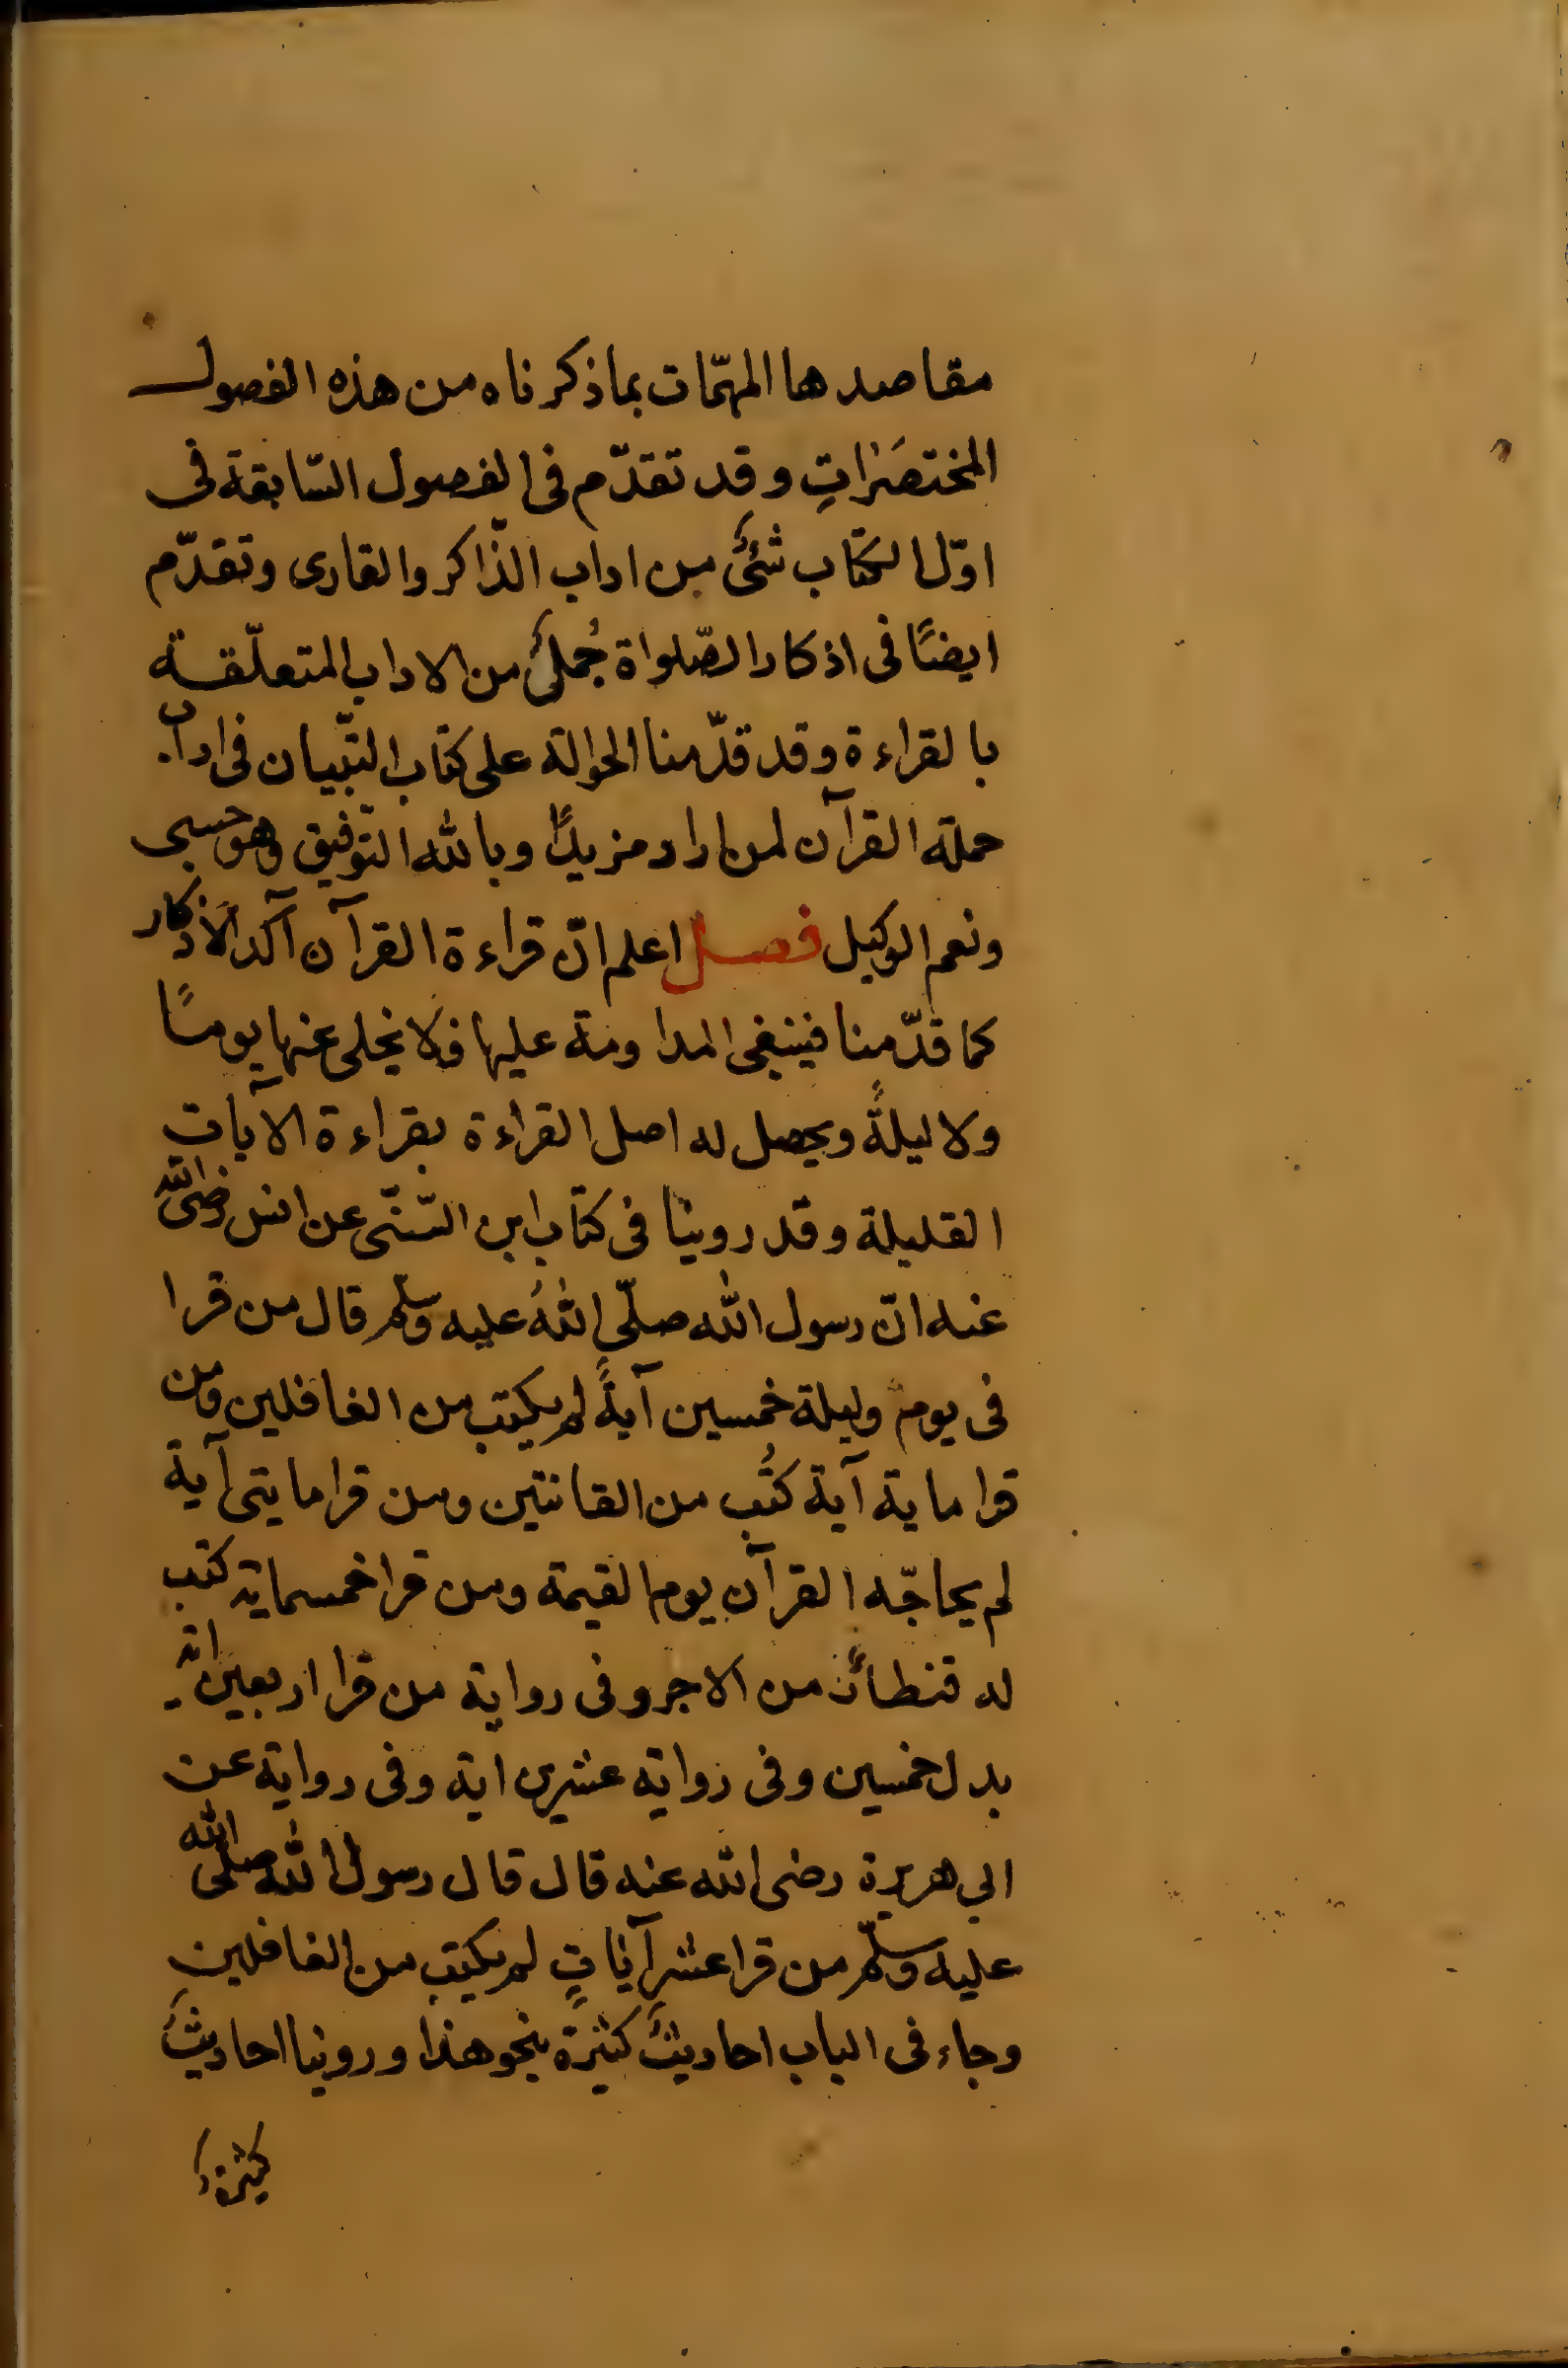 مقاصدها المهمّات بما ذكرناه من هذه الفصول
المختصَرَاتِ وقد تقدّم فى الفصول السّابقة فى
اوّل الكتاب شئٌ من اداب الذّاكر والقارى وتقدّم
ايضًا فى اذكار الصّلواة جُملةٌ من الاداب المتعلّقة
بالقراءة وقد قدّمنا الحوالة على كتاب التّبيان فى اداب
حملة القرآن لمن اراد مزيدًا وبالله التّوفيق وهو حسبى
ونعم الوكيل فصل اعلم انّ قراءة القرآن آكد الاَذكار
كما قدّمنا فينبغى المداومة عليها فلا يخلى عنها يومًا
ولا ليلةً ويحصل له اصل القراءة بقراءة الآيات
القليلة وقد روينا فى كتاب ابن السّنّى عن انس رضى الله
عنه انّ رسول الله صلّى اللهُ عليه وسلّم قال من قرا
فى يوم وليلة خمسين آيةً لم يكتب من الغافلين ومن
قرا ماية آية كُتب من القانتين ومن قرا مايتى آية
لم يحاجّه القرآن يوم القيمة ومن قرا خمسماية كتب
له قنطارٌ من الاجر وفى رواية من قرا اربعين اية
بدل خمسين وفى رواية عشرين اية وفى رواية عن
ابي هريرة رضى الله عنه قال قال رسول الله صلّى الله
عليه وسلّم من قرا عشر آياتٍ لم يكتب من الغافلين
وجاء فى الباب احاديثُ كثيرةٌ بنحو هذا وروينا احاديثَ
كثيرة